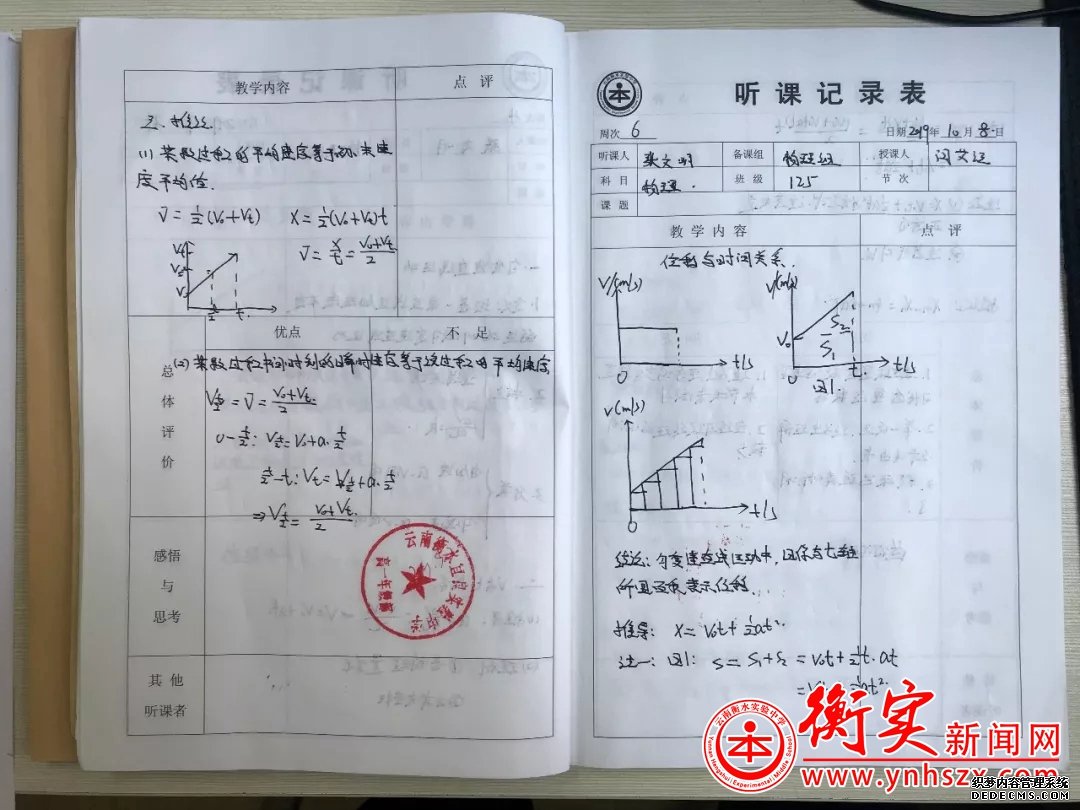 教学内容
点 评
三、推论
(1) 某段过程的平均速度等于初、末速
度平均值.
V̄=½(V₀+Vₜ) X=½(V₀+Vₜ)t
V̄=X/t=(V₀+Vₜ)/2
优点
不 足
总体评价
(2) 某段过程中间时刻的瞬时速度等于该过程的平均速度
V_{t/2}=V̄=(V₀+Vₜ)/2
0-t/2: V_{t/2}=V₀+a·t/2
t/2-t: Vₜ=V_{t/2}+a·t/2
⇒V_{t/2}=(V₀+Vₜ)/2
感悟
与
思考
其 他
听课者
高一年级部
听课记录表
周次 6
日期 2019年10月8日
听课人
备课组 物理组
授课人
科 目 物理.
班 级 125
节 次
课 题
教 学 内 容
点 评
位移与时间关系.
V/(m/s)
t/s
0
V/(m/s)
V₀
S₂
S₁
0
t
t/s
图1.
V(m/s)
0
t/s
结论: 匀变速直线运动中, 图像与t轴
所围面积表示位移.
推导: X=V₀t+½at².
法一: 图1: S=S₁+S₂=V₀t+½t·at
云南衡水实验中学
Yunnan Hengshui Experimental Middle School
衡实新闻网
www.ynhszx.com
织梦内容管理系统
DEDECMS.COM